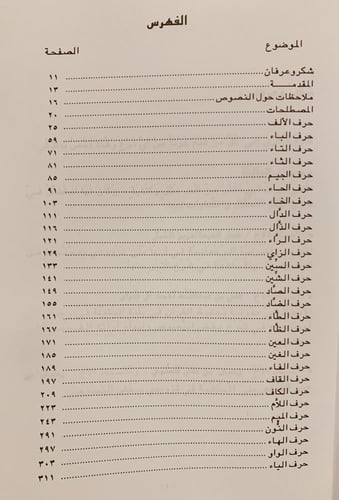 الفهرس
الموضوع الصفحة
شكر وعرفان ١١
المقدمـــة ١٣
ملاحظات حول النصوص ١٦
المصطلحات ٢٠
حرف الألف ٢٥
حرف الباء ٥٩
حرف التاء ٧١
حرف الثاء ٨١
حرف الجيم ٨٥
حرف الحاء ٩١
حرف الخاء ١٠٣
حرف الدّال ١١١
حرف الذّال ١١٦
حرف الرّاء ١٢١
حرف الزاي ١٢٩
حرف السّين ١٣٣
حرف الشّين ١٤١
حرف الصّاد ١٤٩
حرف الضّاد ١٥٥
حرف الطّاء ١٦١
حرف الظّاء ١٦٧
حرف العين ١٧١
حرف الغين ١٨٥
حرف الفاء ١٨٩
حرف القاف ١٩٧
حرف الكاف ٢٠٩
حرف اللاّم ٢٢٣
حرف الميم ٢٤٣
حرف النّون ٢٩١
حرف الهاء ٢٩٧
حرف الواو ٣٠٣
حرف الياء ٣١١